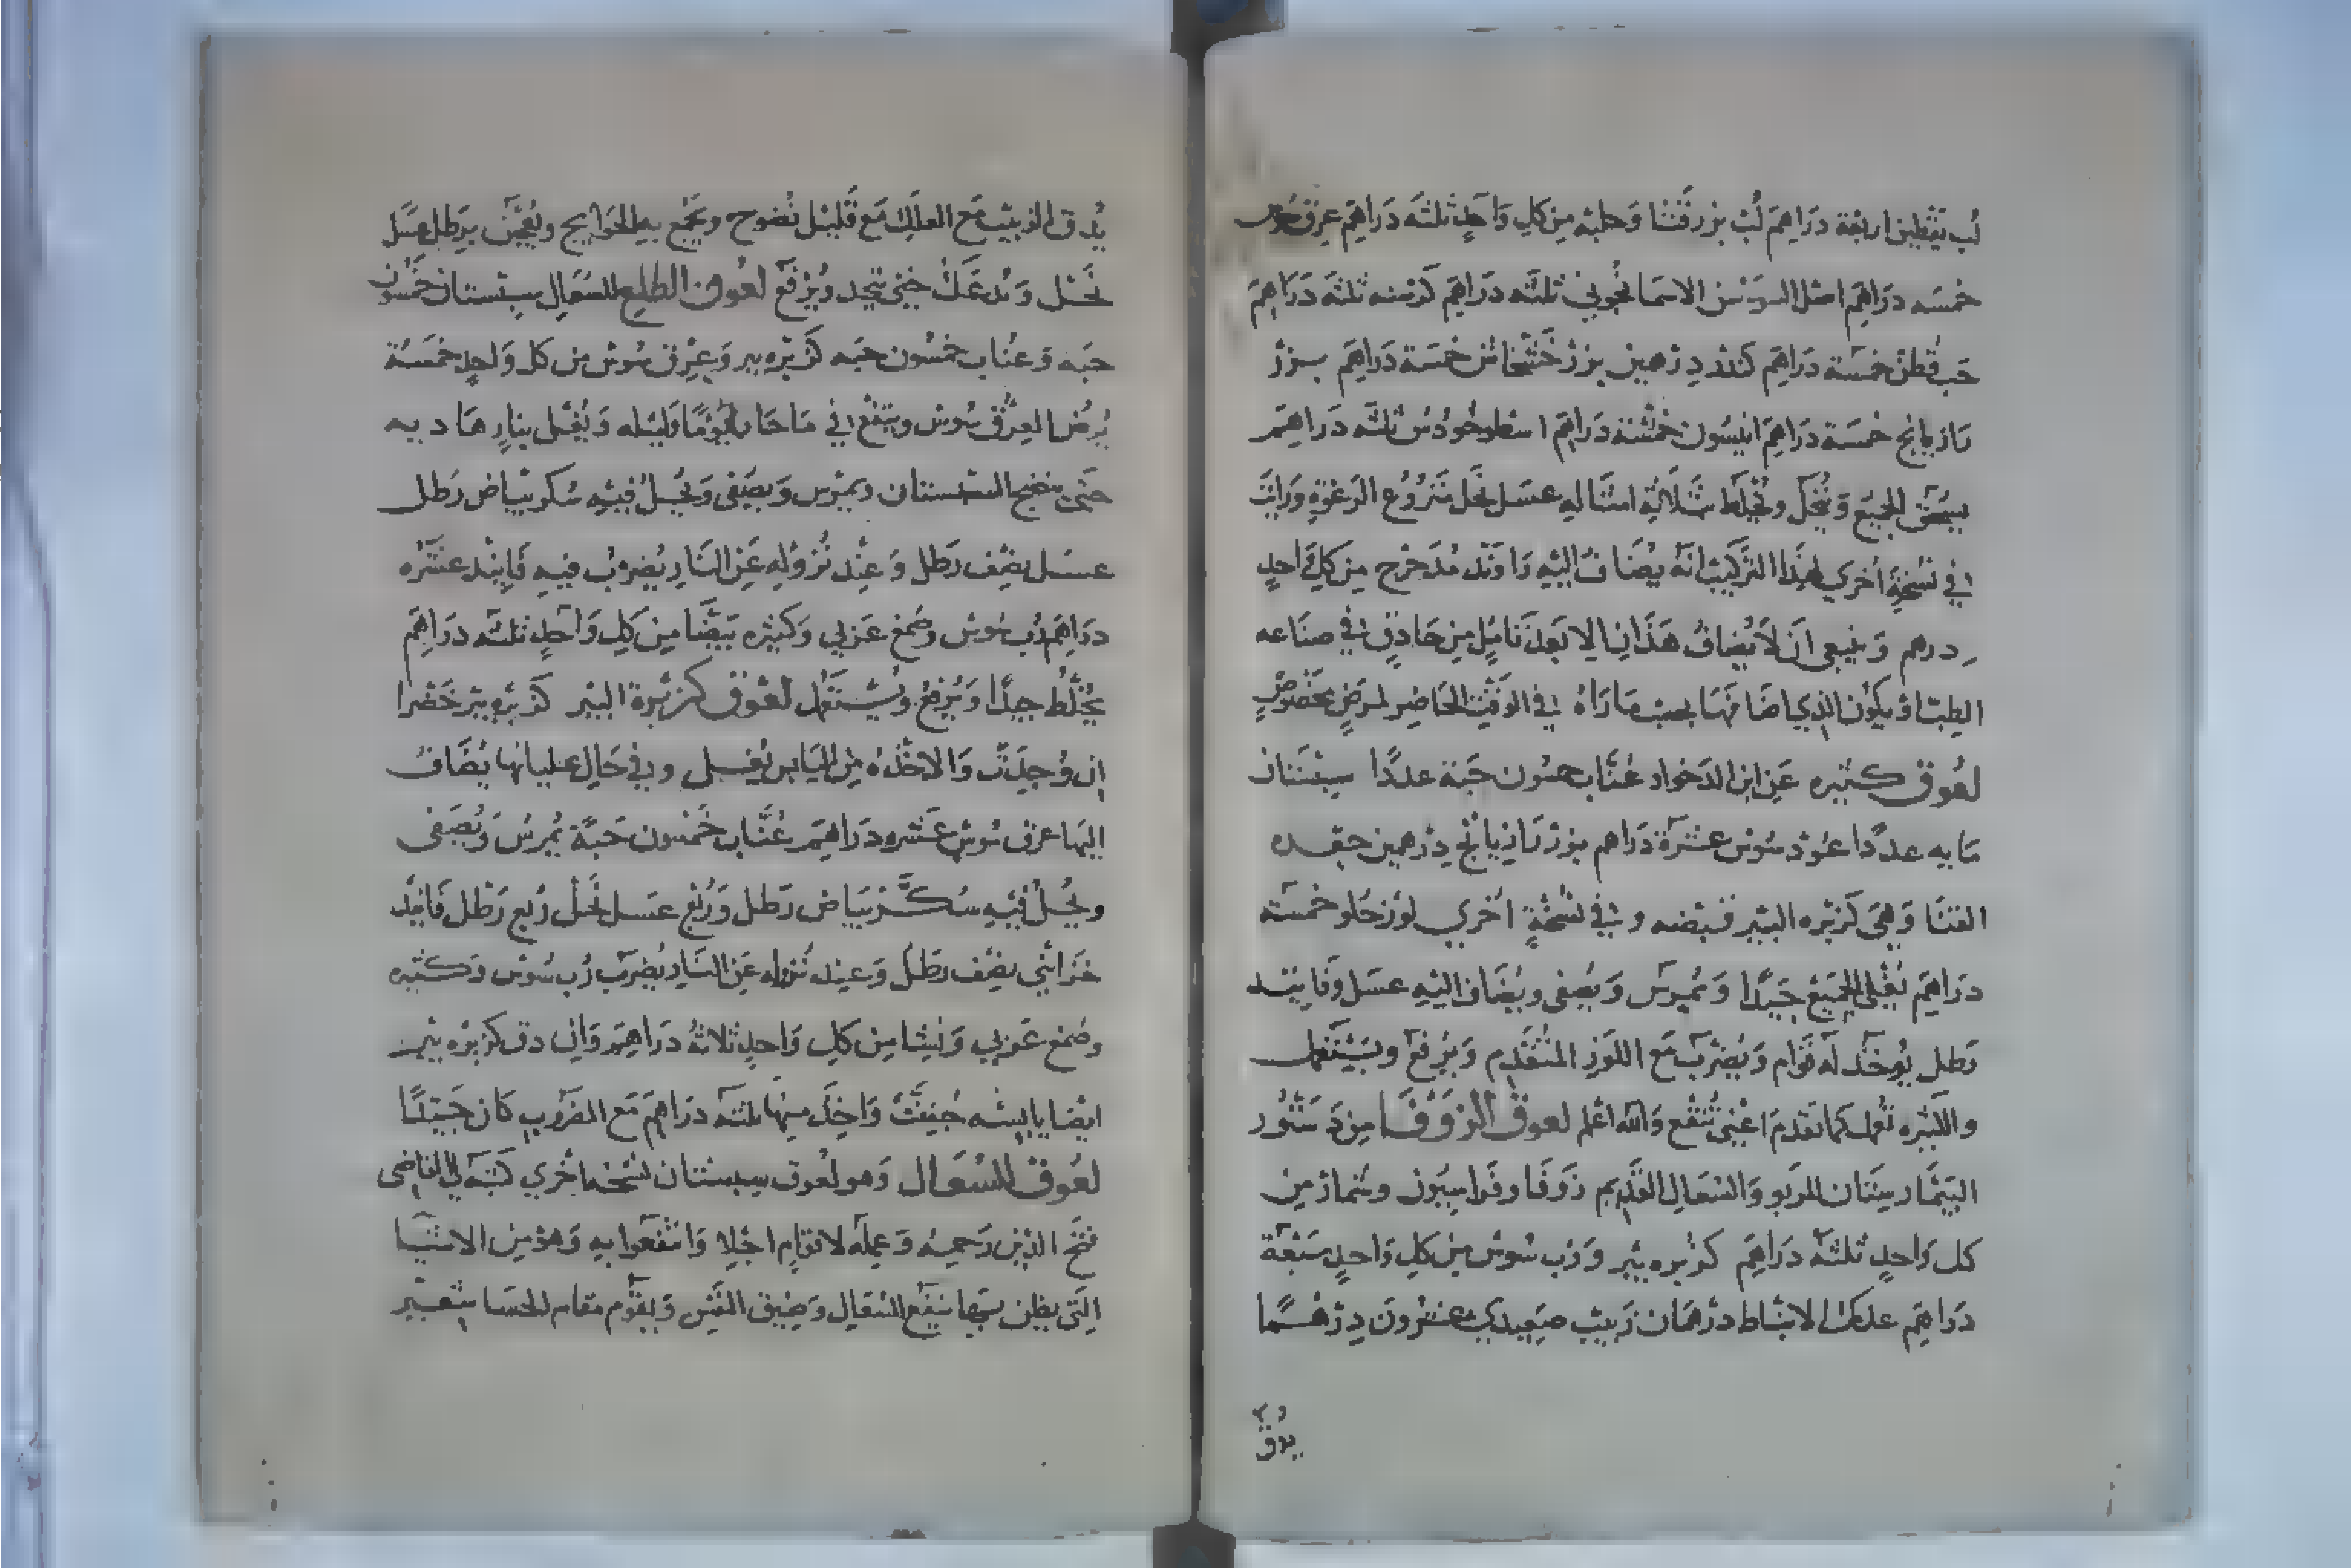 لب يقطين اربعة دراهم لب بزر قثا وحلبه من كل واحد ثلثه دراهم عرق سوس
خمسه دراهم اصل السوسن الاسمانجوني ثلثه دراهم كرسنه ثلثه دراهم
حب قطن خمسة دراهم كندر درهمين بزر خشخاش خمسة دراهم بزر
رازيانج خمسة دراهم انيسون خمسة دراهم اسطوخودس ثلثه دراهم
يسحق الجميع وينخل ويخلط بثلاثة امثاله عسل نحل منزوع الرغوة ورايت
في نسخة اخري لهذا التركيب انه يضاف اليه راوند مدحرج من كل واحد
درهم وينبغي ان لا يضاف هذان الا بعد تامل من حاذق في صناعه
الطب او يكون الذي اضافهما بحسب ما راه في الوقت الحاضر لمرض مخصوص
لعوق كثيره عن ابن الدخوار عناب خمسون حبة عددا سبستان
مايه عددا عود سوس عشرة دراهم بزر رازيانج درهمين جعده
القنا وهي كزبره البير قبضه وفي نسخة اخري لوز حلو خمسه
دراهم يغلي الجميع جيدا ويمرس ويصفي ويضاف اليه عسل وفانيد
رطل يوخذ له قوام ويضرب مع اللوز المتقدم ويرفع ويستعمل
والكثيره تعمل كما تقدم اعني تنقع والله اعلم لعوق الزوفا من دستور
البيمارستان للربو والسعال القديم زوفا وفراسيون وشمار من
كل واحد ثلثه دراهم كزبره بير ورب سوس من كل واحد سبعة
دراهم علك الانباط درهمان زبيب صعيدي عشرون درهما
يدق
يدق الزبيب مع العلك مع قليل نضوح ويجمع به الحوايج ويعجن برطل عسل
نحل ويدعك حتى يتحد ويرفع لعوق الطلع للسعال سبستان خمسون
حبه وعناب خمسون حبه كزبره بير وعرق سوس من كل واحد خمسة
يرض العرق سوس وينقع في ما حار يوما وليله ويغلى بنار هاديه
حتى ينضج السبستان ويمرس ويصفى ويحل فيه سكر بياض رطل
عسل نصف رطل وعند نزوله عن النار يضرب فيه فانيد عشره
دراهم رب سوس وصمغ عربي وكثيره بيضا من كل واحد ثلثه دراهم
يخلط جيدا ويرفع ويستعمل لعوق كزبرة البير كزبره بير خضرا
ان وجدت والا خذه من اليابس يغسل وفي حال غليانها يضاف
اليها عرق سوس عشره دراهم عناب خمسون حبة يمرس ويصفى
ويحل فيه سكر بياض رطل وربع عسل نحل ربع رطل فانيد
خزائني نصف رطل وعند نزوله عن النار يضرب رب سوس وكثيره
وصمغ عربي ونشا من كل واحد ثلاثة دراهم وان دق كزبره بير
ايضا يابسه جففت واخذ منها ثلثه دراهم مع المضروب كان جيدا
لعوق للسعال وهو لعوق سبستان نسخه اخري كتبه لي القاضي
فتح الدين رحمه وعمله لاقوام اجلا وانتفعوا به وهو من الاشيا
التي يظن بها نفع السعال وضيق النفس ويقوم مقام الحسا شعير